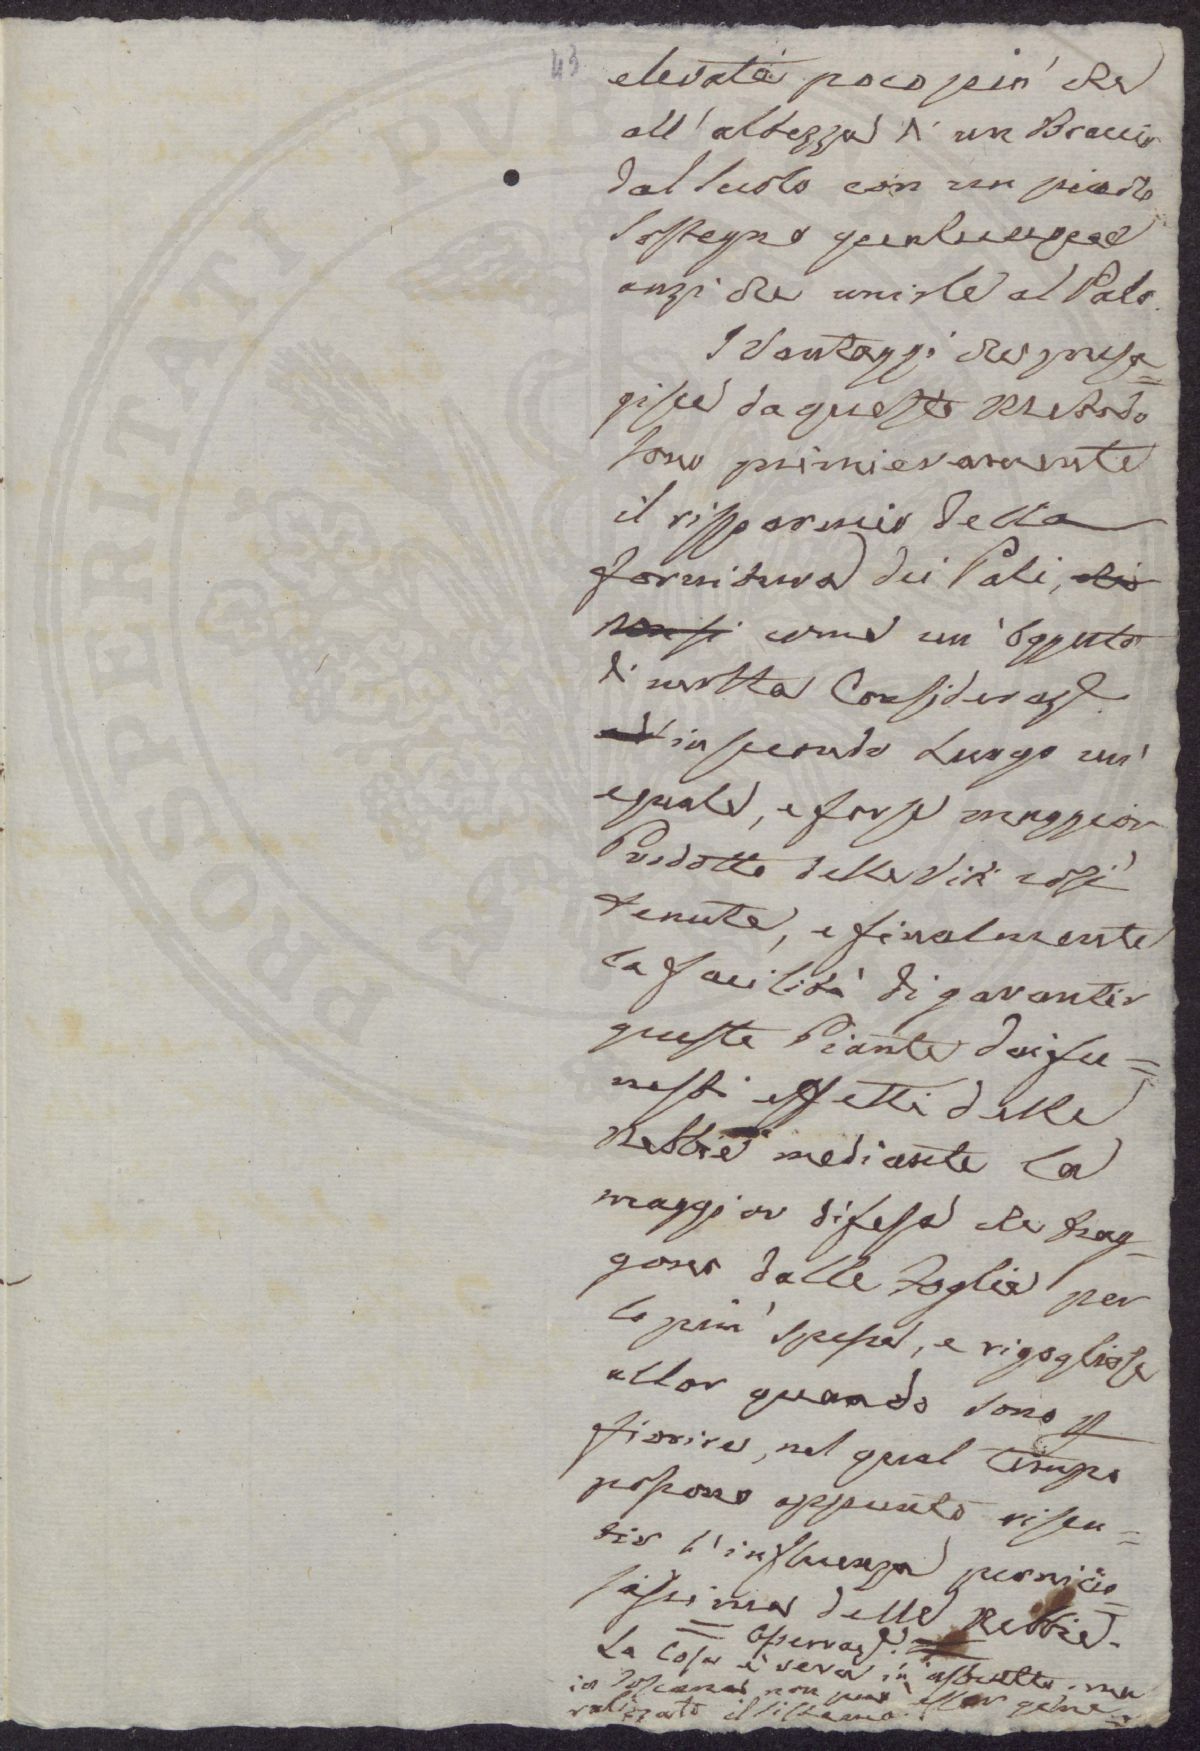 43
elevata poco più che
all'altezza d'un Braccio
dal suolo con un piccolo
sostegno qualunque
anzi che unirle al Palo.
I vantaggi che presa=
gisce da questo Metodo
sono primieramente
il risparmio della
fornitura dei Pali,
come un'oggetto
di molta Consideraz.e
in secondo luogo un'
eguale, e forse maggior
Prodotto delle Viti così
tenute, e finalmente
la facilità di garantir
queste Piante dai fu=
nesti effetti delle
Nebbie mediante la
maggior difesa che trag=
gono dalle Foglie per
lo più spesse, e rigogliose
allor quando sono p
fiorire, nel qual Tempo
possono appunto risen=
tir l'influenza pernicio=
sissima delle Nebbie.
= Osservaz.e
La Cosa è vera in astratto, ma
in Toscana non può esser gene=
ralizzato il sistema.
PROSPERITATI